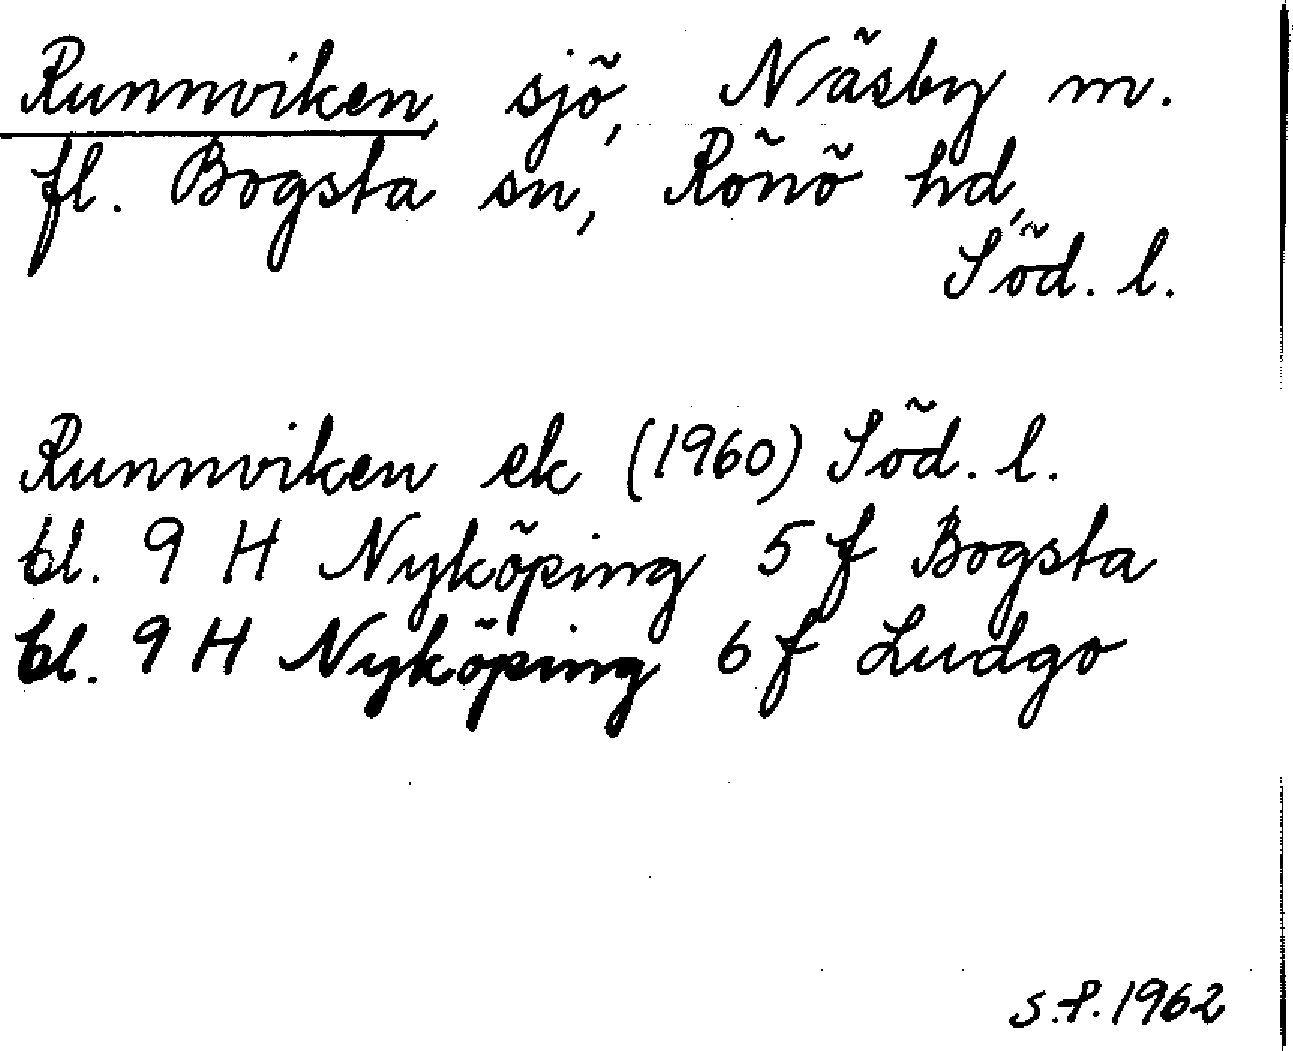 Runnviken, sjö, Näsby m.
fl. Bogsta sn, Rönö hd,
Söd. l.
Runnviken ek (1960) Söd. l.
bl. 9 H Nyköping 5 f Bogsta
bl. 9 H Nyköping 6 f Ludgo
S.P. 1962